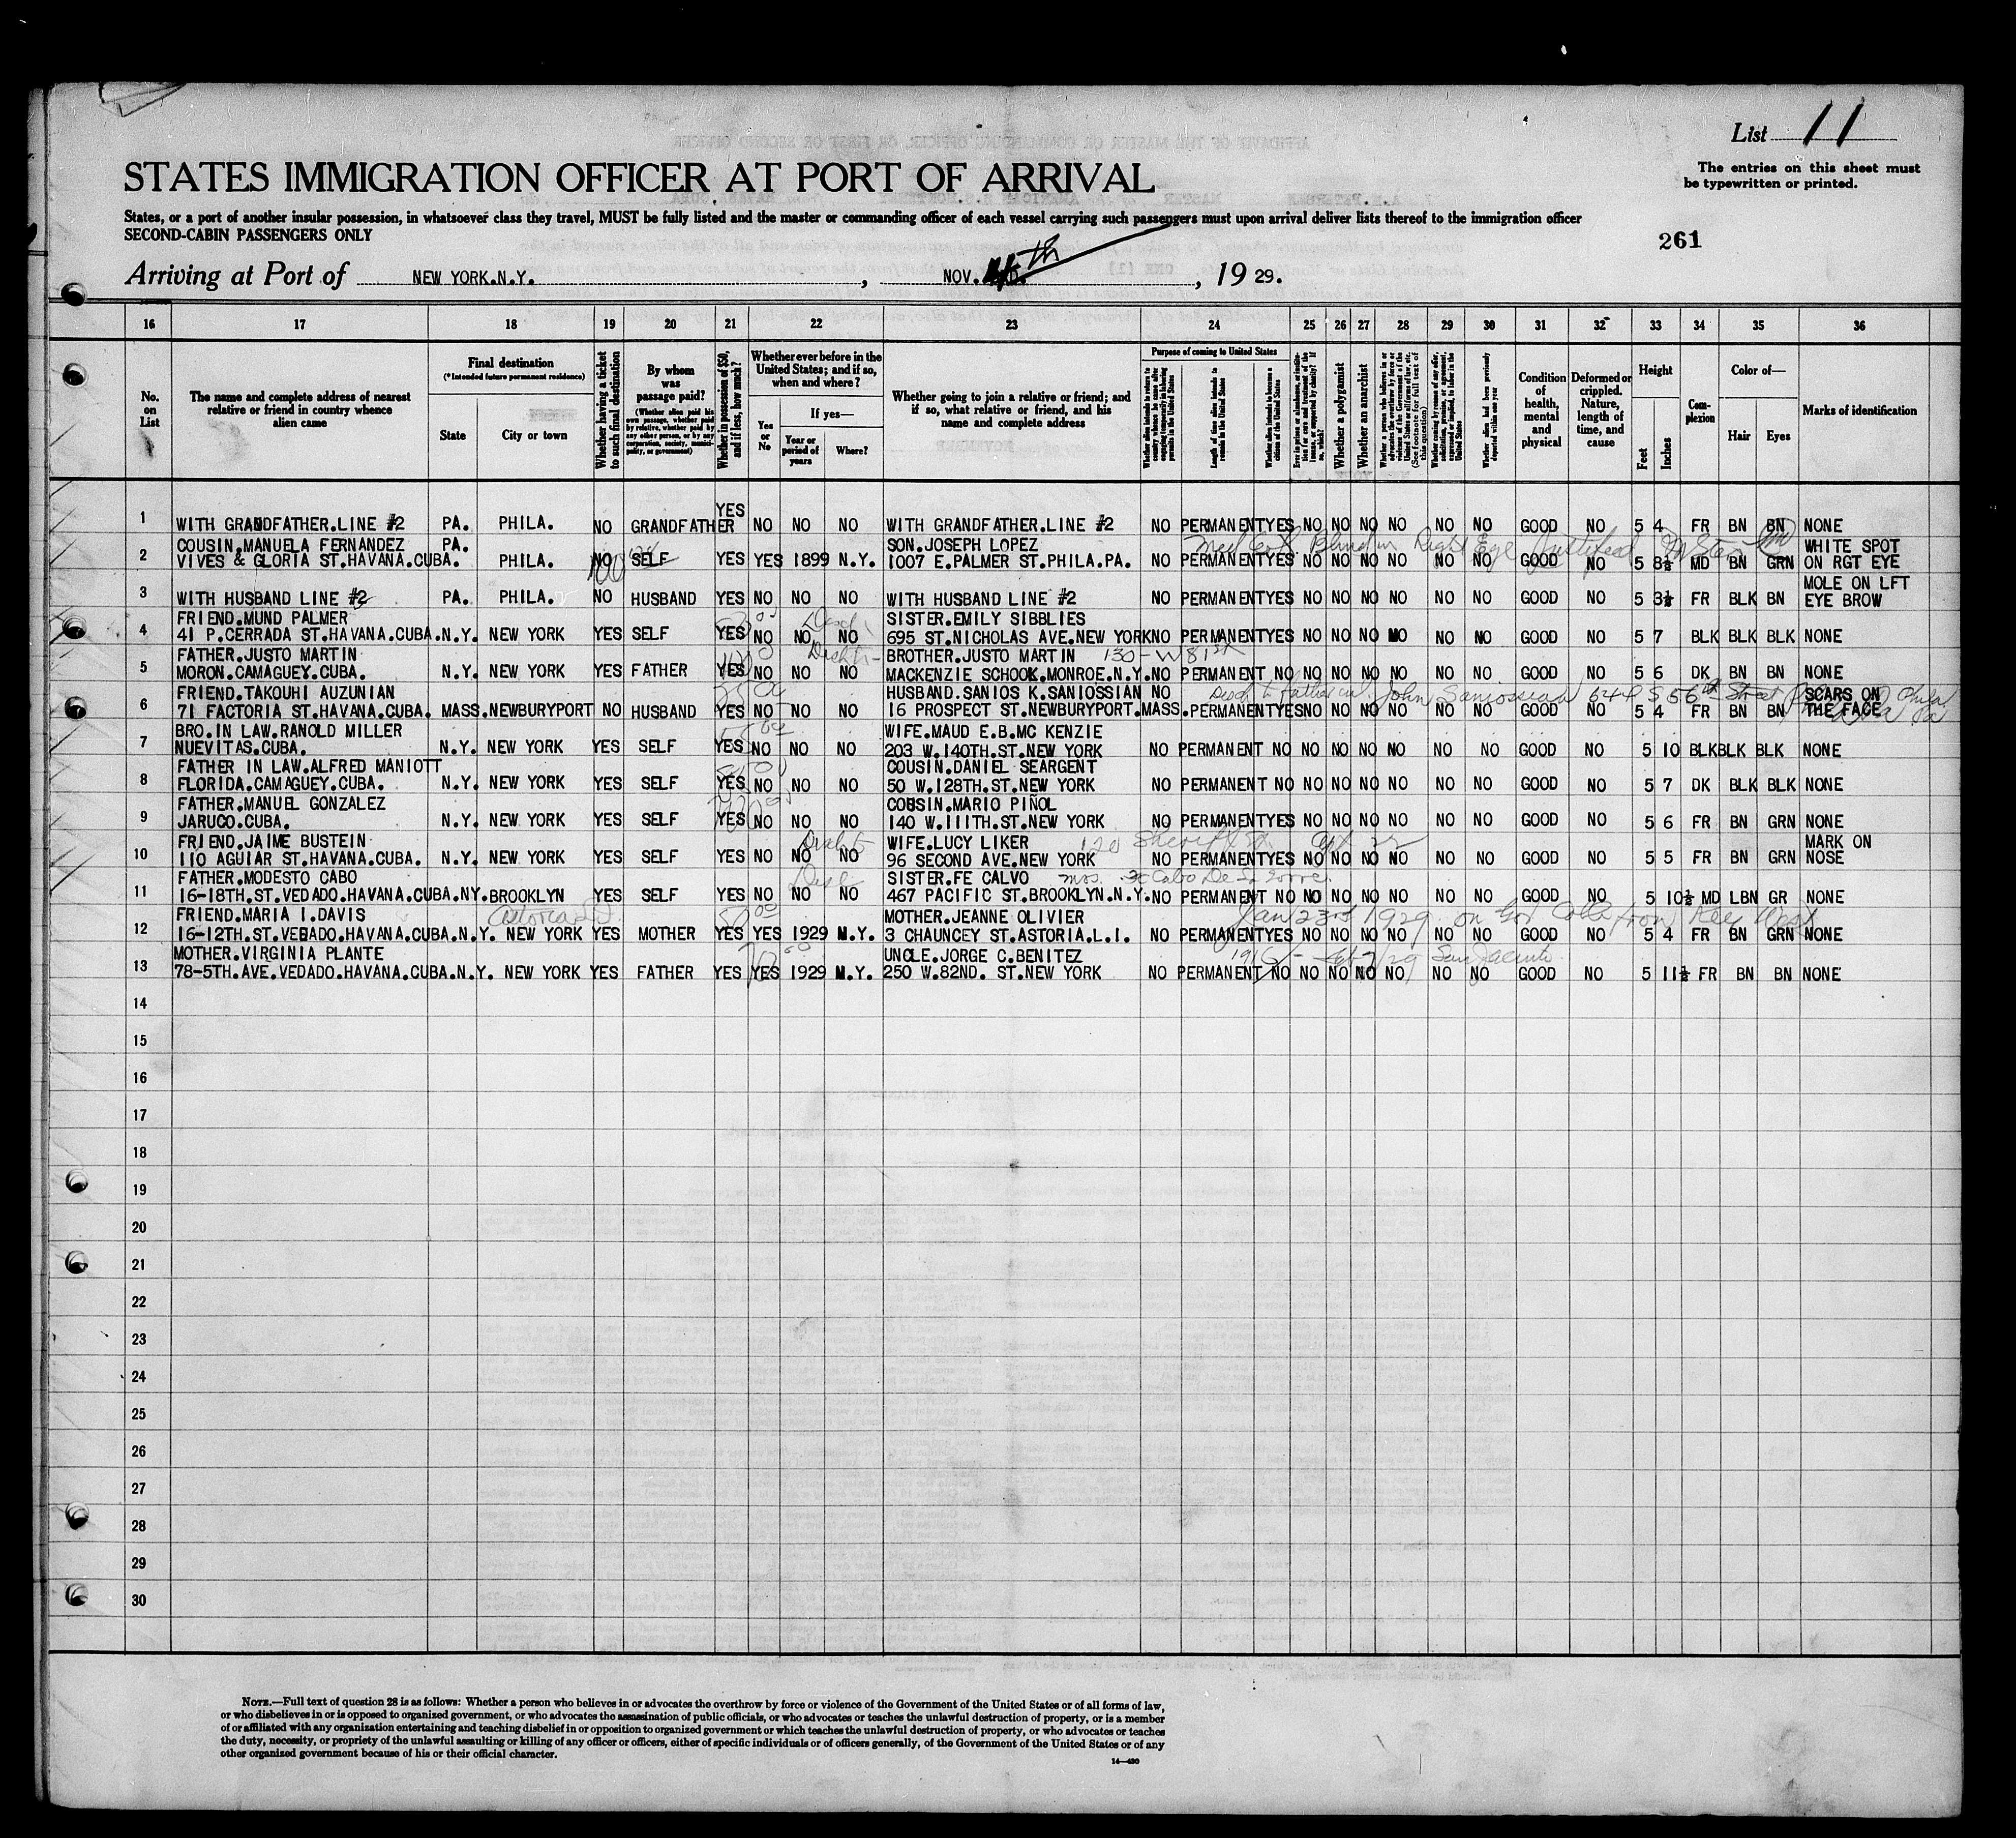 List 11
The entries on this sheet must
be typewritten or printed.
STATES IMMIGRATION OFFICER AT PORT OF ARRIVAL
States, or a port of another insular possession, in whatsoever class they travel, MUST be fully listed and the master or commanding officer of each vessel carrying such passengers must upon arrival deliver lists thereof to the immigration officer
SECOND-CABIN PASSENGERS ONLY
261
Arriving at Port of NEW YORK.N.Y. , NOV. 4th , 19 29.
16 17 18 19 20 21 22 23 24 25 26 27 28 29 30 31 32 33 34 35 36
No. on List
The name and complete address of nearest relative or friend in country whence alien came
Final destination
(*Intended future permanent residence)
State
City or town
Whether having a ticket to such final destination
By whom was passage paid?
(Whether alien paid his own passage, whether paid by relative, whether paid by any other person, or by any corporation, society, municipality, or government)
Whether in possession of $50, and if less, how much?
Whether ever before in the United States; and if so, when and where?
Yes or No
If yes—
Year or period of years
Where?
Whether going to join a relative or friend; and if so, what relative or friend, and his name and complete address
Purpose of coming to United States
Length of time alien intends to remain in the United States
Whether alien intends to become a citizen of the United States
Whether a polygamist
Whether an anarchist
Condition of health, mental and physical
Deformed or crippled. Nature, length of time, and cause
Height
Feet
Inches
Complexion
Color of—
Hair
Eyes
Marks of identification
1 WITH GRANDFATHER.LINE #2 PA. PHILA. NO GRANDFATHER YES NO NO NO WITH GRANDFATHER.LINE #2 NO PERMANENT YES NO NO NO NO NO NO GOOD NO 5 4 FR BN BN NONE
COUSIN.MANUELA FERNANDEZ PA. SON.JOSEPH LOPEZ Blind in Right Eye WHITE SPOT
2 VIVES & GLORIA ST.HAVANA.CUBA. PHILA. NO SELF YES YES 1899 N.Y. 1007 E.PALMER ST.PHILA.PA. NO PERMANENT YES NO NO NO NO NO NO GOOD NO 5 8½ MD BN GRN ON RGT EYE
MOLE ON LFT
3 WITH HUSBAND LINE #2 PA. PHILA. NO HUSBAND YES NO NO NO WITH HUSBAND LINE #2 NO PERMANENT YES NO NO NO NO NO NO GOOD NO 5 3½ FR BLK BN EYE BROW
FRIEND.MUND PALMER SISTER.EMILY SIBBLIES
4 41 P.CERRADA ST.HAVANA.CUBA. N.Y. NEW YORK YES SELF YES NO NO NO 695 ST.NICHOLAS AVE.NEW YORK NO PERMANENT YES NO NO NO NO NO NO GOOD NO 5 7 BLK BLK BLK NONE
FATHER.JUSTO MARTIN BROTHER.JUSTO MARTIN 130-W 81st
5 MORON.CAMAGUEY.CUBA. N.Y. NEW YORK YES FATHER YES NO NO NO MACKENZIE SCHOOK.MONROE.N.Y. NO PERMANENT NO NO NO NO NO NO NO GOOD NO 5 6 DK BN BN NONE
FRIEND.TAKOUHI AUZUNIAN HUSBAND.SANIOS K.SANIOSSIAN NO John Saniossian 644 S 56th Street Phila Pa SCARS ON
6 71 FACTORIA ST.HAVANA.CUBA. MASS. NEWBURYPORT NO HUSBAND YES NO NO NO 16 PROSPECT ST.NEWBURYPORT.MASS. PERMANENT YES NO NO NO NO NO NO GOOD NO 5 4 FR BN BN THE FACE
BRO.IN LAW.RANOLD MILLER WIFE.MAUD E.B.MC KENZIE
7 NUEVITAS.CUBA. N.Y. NEW YORK YES SELF YES NO NO NO 203 W.140TH.ST.NEW YORK NO PERMANENT NO NO NO NO NO NO NO GOOD NO 5 10 BLK BLK BLK NONE
FATHER IN LAW.ALFRED MANIOTT COUSIN.DANIEL SEARGENT
8 FLORIDA.CAMAGUEY.CUBA. N.Y. NEW YORK YES SELF YES NO NO NO 50 W.128TH.ST.NEW YORK NO PERMANENT NO NO NO NO NO NO NO GOOD NO 5 7 DK BLK BLK NONE
FATHER.MANUEL GONZALEZ COUSIN.MARIO PIÑOL
9 JARUCO.CUBA. N.Y. NEW YORK YES SELF YES NO NO NO 140 W.111TH.ST.NEW YORK NO PERMANENT YES NO NO NO NO NO NO GOOD NO 5 6 FR BN GRN NONE
FRIEND.JAIME BUSTEIN WIFE.LUCY LIKER 120 Sheriff St. Apt 22 MARK ON
10 110 AGUIAR ST.HAVANA.CUBA. N.Y. NEW YORK YES SELF YES NO NO NO 96 SECOND AVE.NEW YORK NO PERMANENT YES NO NO NO NO NO NO GOOD NO 5 5 FR BN GRN NOSE
FATHER.MODESTO CABO SISTER.FE CALVO
11 16-18TH.ST.VEDADO.HAVANA.CUBA. NY. BROOKLYN YES SELF YES NO NO NO 467 PACIFIC ST.BROOKLYN.N.Y. NO PERMANENT NO NO NO NO NO NO NO GOOD NO 5 10½ MD LBN GR NONE
FRIEND.MARIA I.DAVIS Astoria L.I. MOTHER.JEANNE OLIVIER Jan 23rd 1929 Key West
12 16-12TH.ST.VEDADO.HAVANA.CUBA. N.Y. NEW YORK YES MOTHER YES YES 1929 N.Y. 3 CHAUNCEY ST.ASTORIA.L.I. NO PERMANENT YES NO NO NO NO NO NO GOOD NO 5 4 FR BN GRN NONE
MOTHER.VIRGINIA PLANTE UNCLE.JORGE C.BENITEZ San Jacinto
13 78-5TH.AVE.VEDADO.HAVANA.CUBA. N.Y. NEW YORK YES FATHER YES YES 1929 N.Y. 250 W.82ND. ST.NEW YORK NO PERMANENT NO NO NO NO NO NO NO GOOD NO 5 11½ FR BN BN NONE
14
15
16
17
18
19
20
21
22
23
24
25
26
27
28
29
30
NOTE.—Full text of question 28 is as follows: Whether a person who believes in or advocates the overthrow by force or violence of the Government of the United States or of all forms of law,
or who disbelieves in or is opposed to organized government, or who advocates the assassination of public officials, or who advocates or teaches the unlawful destruction of property, or is a member
of or affiliated with any organization entertaining and teaching disbelief in or opposition to organized government or which teaches the unlawful destruction of property, or who advocates or teaches
the duty, necessity, or propriety of the unlawful assaulting or killing of any officer or officers, either of specific individuals or of officers generally, of the Government of the United States or of any
other organized government because of his or their official character.
14—430